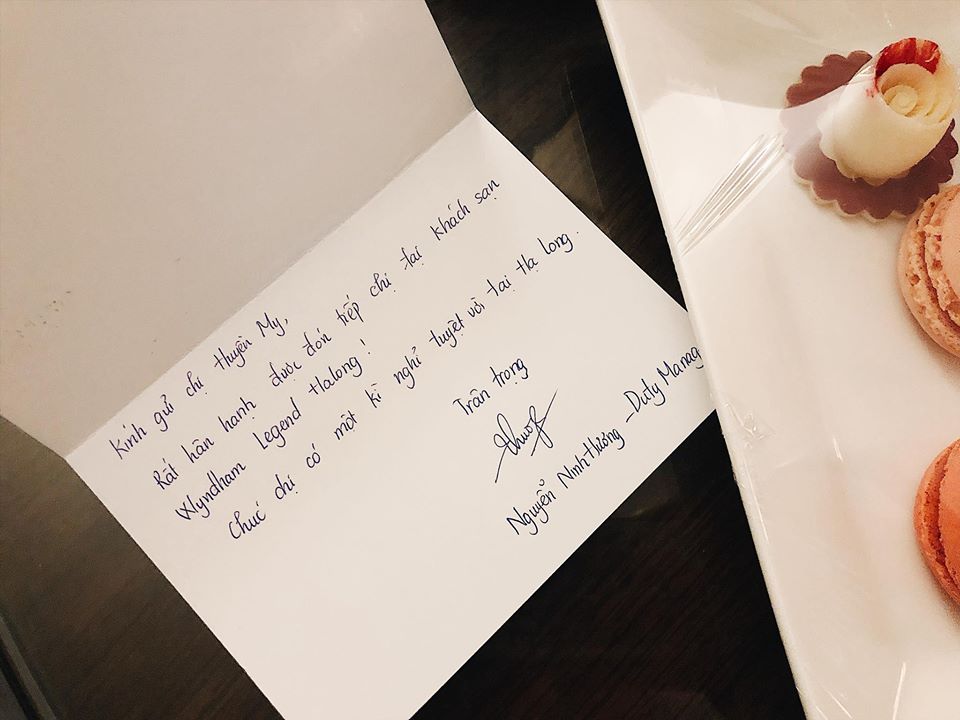 Kính gửi chị Huyền My,
Rất hân hạnh được đón tiếp chị tại khách sạn
Wyndham Legend Halong!
Chúc chị có một kì nghỉ tuyệt vời tại Hạ Long.
Trân trọng
Nguyễn Ninh Hương _ Duty Manag